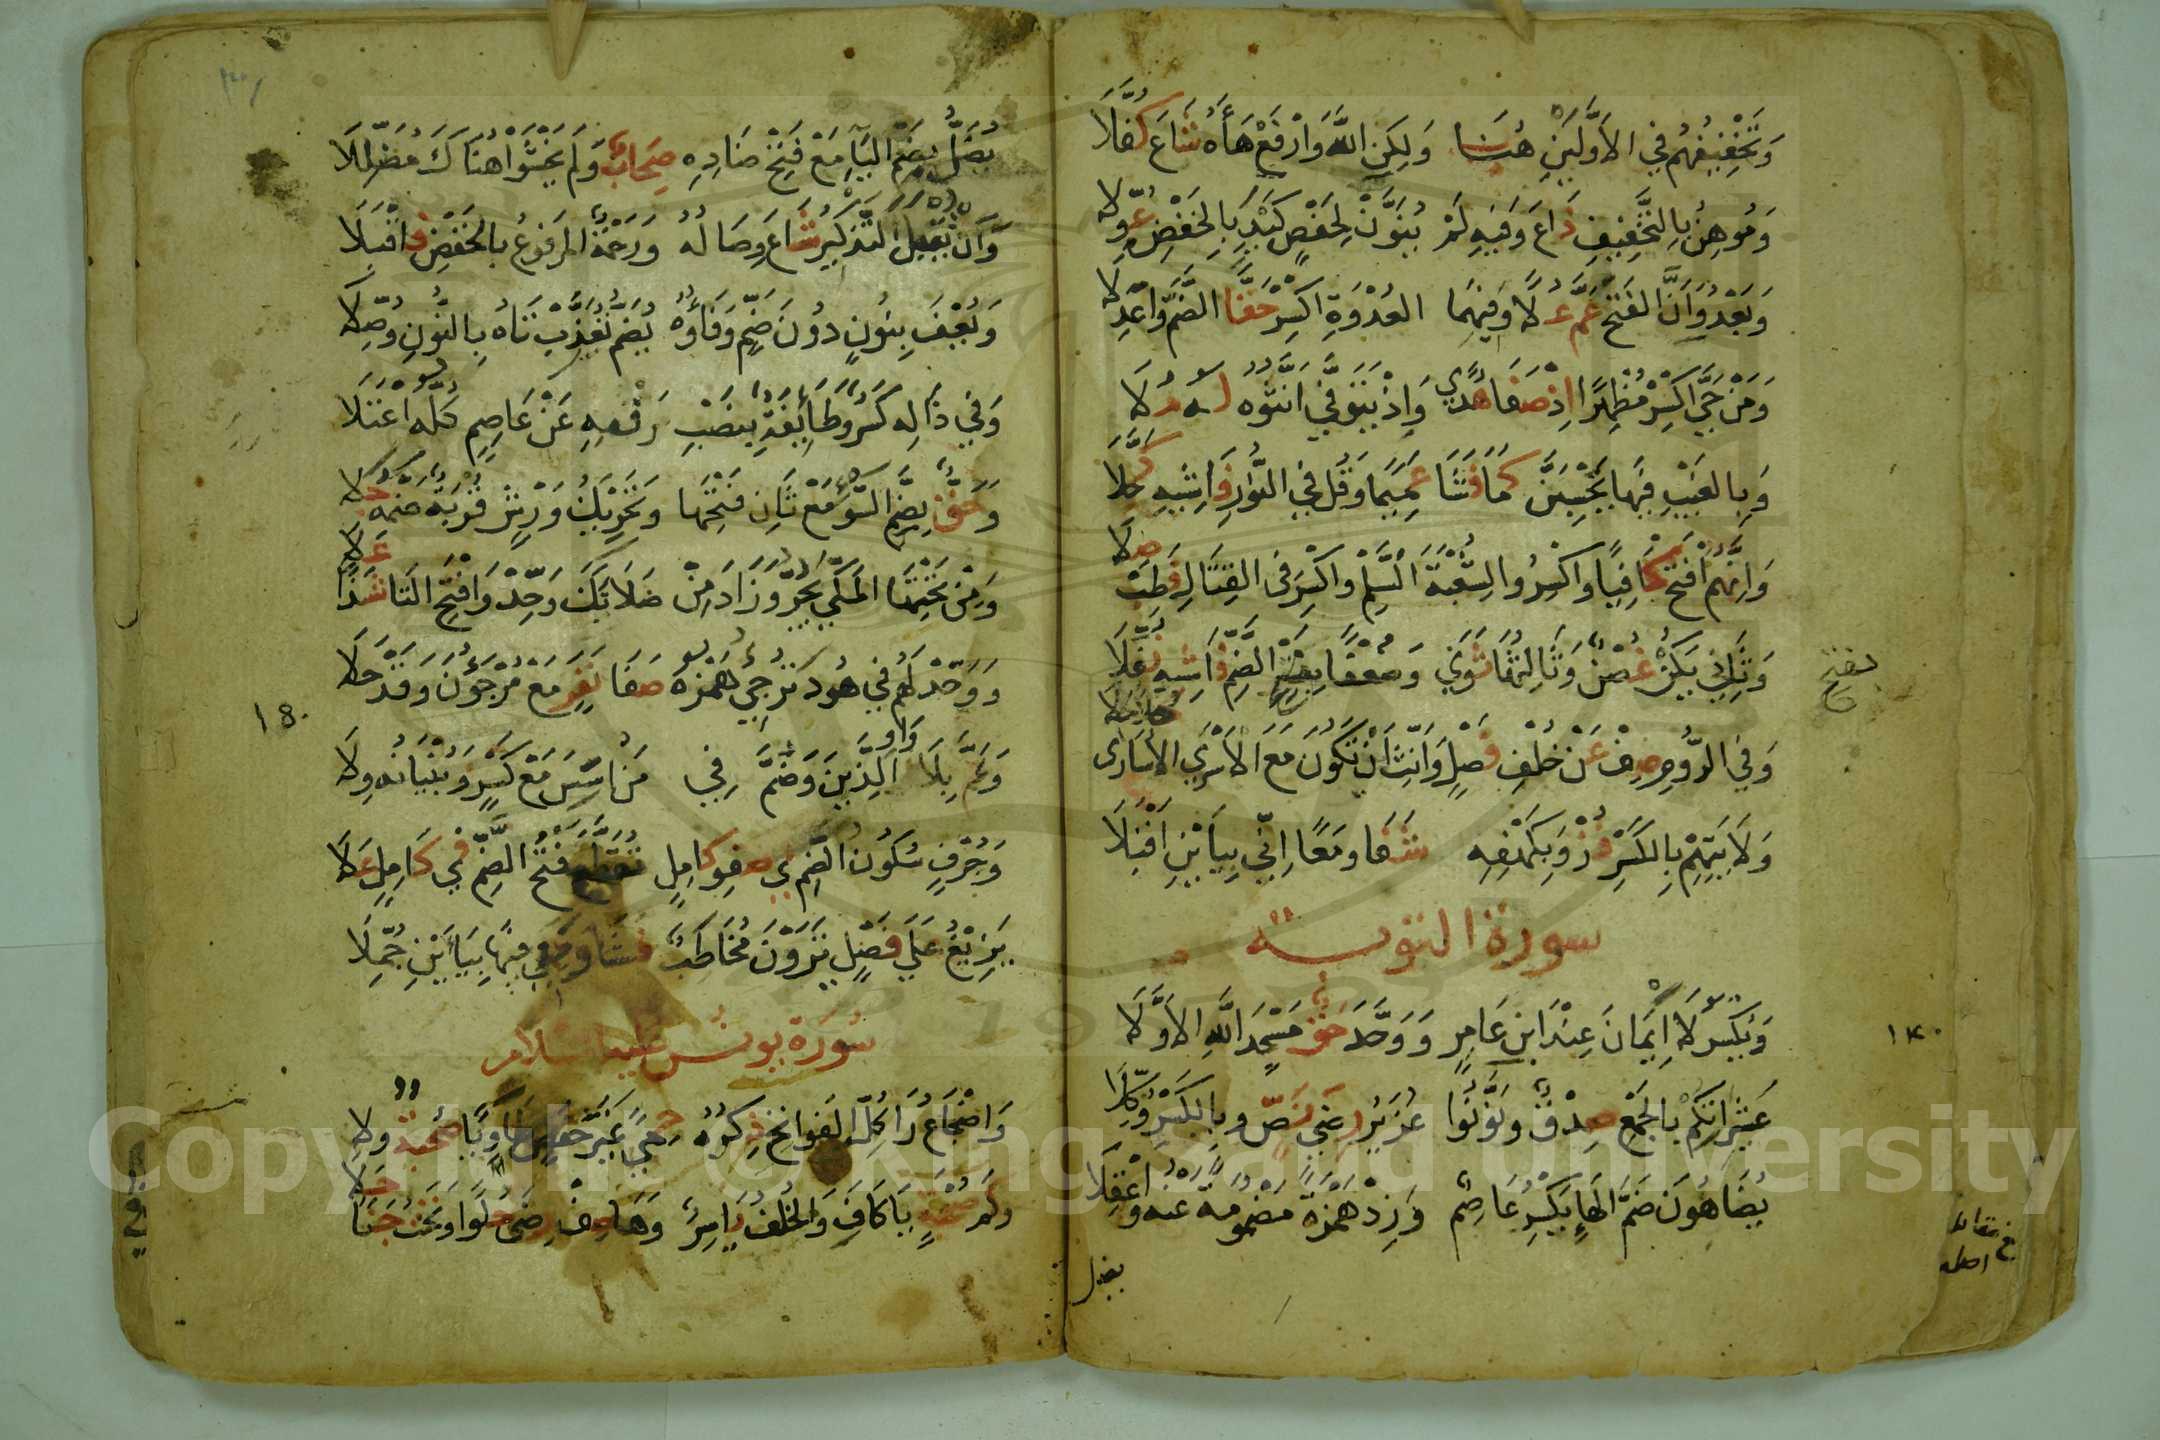 وَتَخْفِيفُهُمْ فِي الأَوَّلَيْنِ هُنَا وَلَكِنِ اللهُ وَارْفَعْ هَاءَهُ شَاعَ كُفَّلَا
وَمُوهِنُ بِالتَّخْفِيفِ ذَاعَ وَفِيهِ لَمْ يُنَوَّنْ لِحَفْصٍ كَيْدِ بِالخَفْضِ عُوِّلَا
وَبَعْدُ وَأَنَّ الفَتْحُ عَمَّ عُلًا وَفِيهِمَا العُدْوَةِ اكْسِرْ حَقًّا الضَّمَّ وَاعْدِلَا
وَمَنْ حَيِيَ اكْسِرْ مُظْهِرًا إِذْ صَفَا هُدًى وَإِذْ يَتَوَفَّى أَنِّثُوهُ لَهُ مُلَا
وَبِالغَيْبِ فِيهَا يَحْسِبَنَّ كَمَا فَشَا عَمِيمًا وَقُلْ فِي النُّورِ فَاشِيهِ كَحَّلَا
وَإِنَّهُمُ افْتَحْ كَافِيًا وَاكْسِرُوا لِشُعْبَةَ السَّلْمِ وَاكْسِرْ فِي القِتَالِ فَطِبْ صِلَا
وَثَانِي يَكُنْ غُصْنٌ وَثَالِثُهَا ثَوَى وَضُعْفًا بِفَتْحِ الضَّمِّ فَاشِيهِ نُفِّلَا
وَفِي الرُّومِ صِفْ عَنْ خُلْفِ فَصْلٍ وَأَنِّثْ أَنْ تَكُونَ مَعَ الأَسْرَى الأُسَارَى حُلًا حَلَا
وَلَايَتِهِمْ بِالكَسْرِ فُزْ وَبِكَهْفِهِ شَفَا وَمَعًا إِنِّي بِيَاءَيْنِ أَقْبَلَا
سورة التوبة
وَيُكْسَرُ لَا إِيمَانَ عِنْدَ ابْنِ عَامِرٍ وَوَحَّدَ حَقٌّ مَسْجِدَ اللهِ الأَوَّلَا
عَشِيرَاتُكُمْ بِالجَمْعِ صِدْقٌ وَنَوَّنُوا عُزَيْرُ رِضَى نَصٍّ وَبِالكَسْرِ وُكِّلَا
يُضَاهُونَ ضَمَّ الهَاءِ يَكْسِرُ عَاصِمٌ وَزِدْ هَمْزَةً مَضْمُومَةً عَنْهُ وَاعْقِلَا
يضل
بفتح
١٤٠
يُضَلُّ بِضَمِّ اليَاءِ مَعْ فَتْحِ ضَادِهِ صِحَابٌ وَلَمْ يَخْشَوْا هُنَاكَ مُضَلِّلَا
وَأَنْ تُقْبَلَ التَّذْكِيرُ شَاعَ وِصَالُهُ وَرَحْمَةٌ المَرْفُوعُ بِالخَفْضِ فَاقْبَلَا
وَيُعْفَ بِنُونٍ دُونَ ضَمٍّ وَفَاؤُهُ يُضَمُّ تُعَذَّبْ تَاهُ بِالنُّونِ وُصِّلَا
وَفِي ذَالِهِ كَسْرٌ وَطَائِفَةٌ بِنَصْبِ رَفْعِهِ عَنْ عَاصِمٍ كُلُّهُ اعْتَلَا
وَحَقٌّ بِضَمِّ السَّوْءِ مَعْ ثَانِ فَتْحِهَا وَتَحْرِيكُ وَرْشٍ قُرْبَةٌ ضَمُّهُ جَلَا
وَمِنْ تَحْتِهَا المَكِّي يَجُرُّ وَزَادَ مِنْ صَلَاتَكَ وَحِّدْ وَافْتَحِ التَّا شَذًا عَلَا
وَوَحِّدْ لَهُمْ فِي هُودَ تُرْجِئُ هَمْزُهُ صَفَا نَفَرٍ مَعْ مُرْجَؤُنَ وَقَدْ حَلَا
وَعَمَّ بِلَا وَاوِ الَّذِينَ وَضُمَّ فِي مَنْ أُسِّسَ مَعْ كَسْرٍ وَبُنْيَانُهُ وِلَا
وَجُرْفٍ سُكُونُ الضَّمِّ فِي صَفْوِ كَامِلٍ تُقَطَّعَ فَتْحُ الضَّمِّ فِي كَامِلٍ عَلَا
يَزِيغُ عَلَى فَصْلٍ يَرَوْنَ مُخَاطَبٌ فَشَا وَمَعِي فِيهَا بِيَاءَيْنِ جُمِّلَا
سورة يونس عليه السلام
وَإِضْجَاعُ رَا كُلِّ الفَوَاتِحِ ذِكْرُهُ حِمًى غَيْرَ حَفْصٍ طَاوَيَا صُحْبَةٌ وِلَا
وَكَمْ صُحْبَةٍ يَا كَافَ وَالخُلْفُ يَاسِرٌ وَهَا صِفْ رِضًى حُلْوًا وَتَحْتَ جَنًا حَلَا
١٥٠